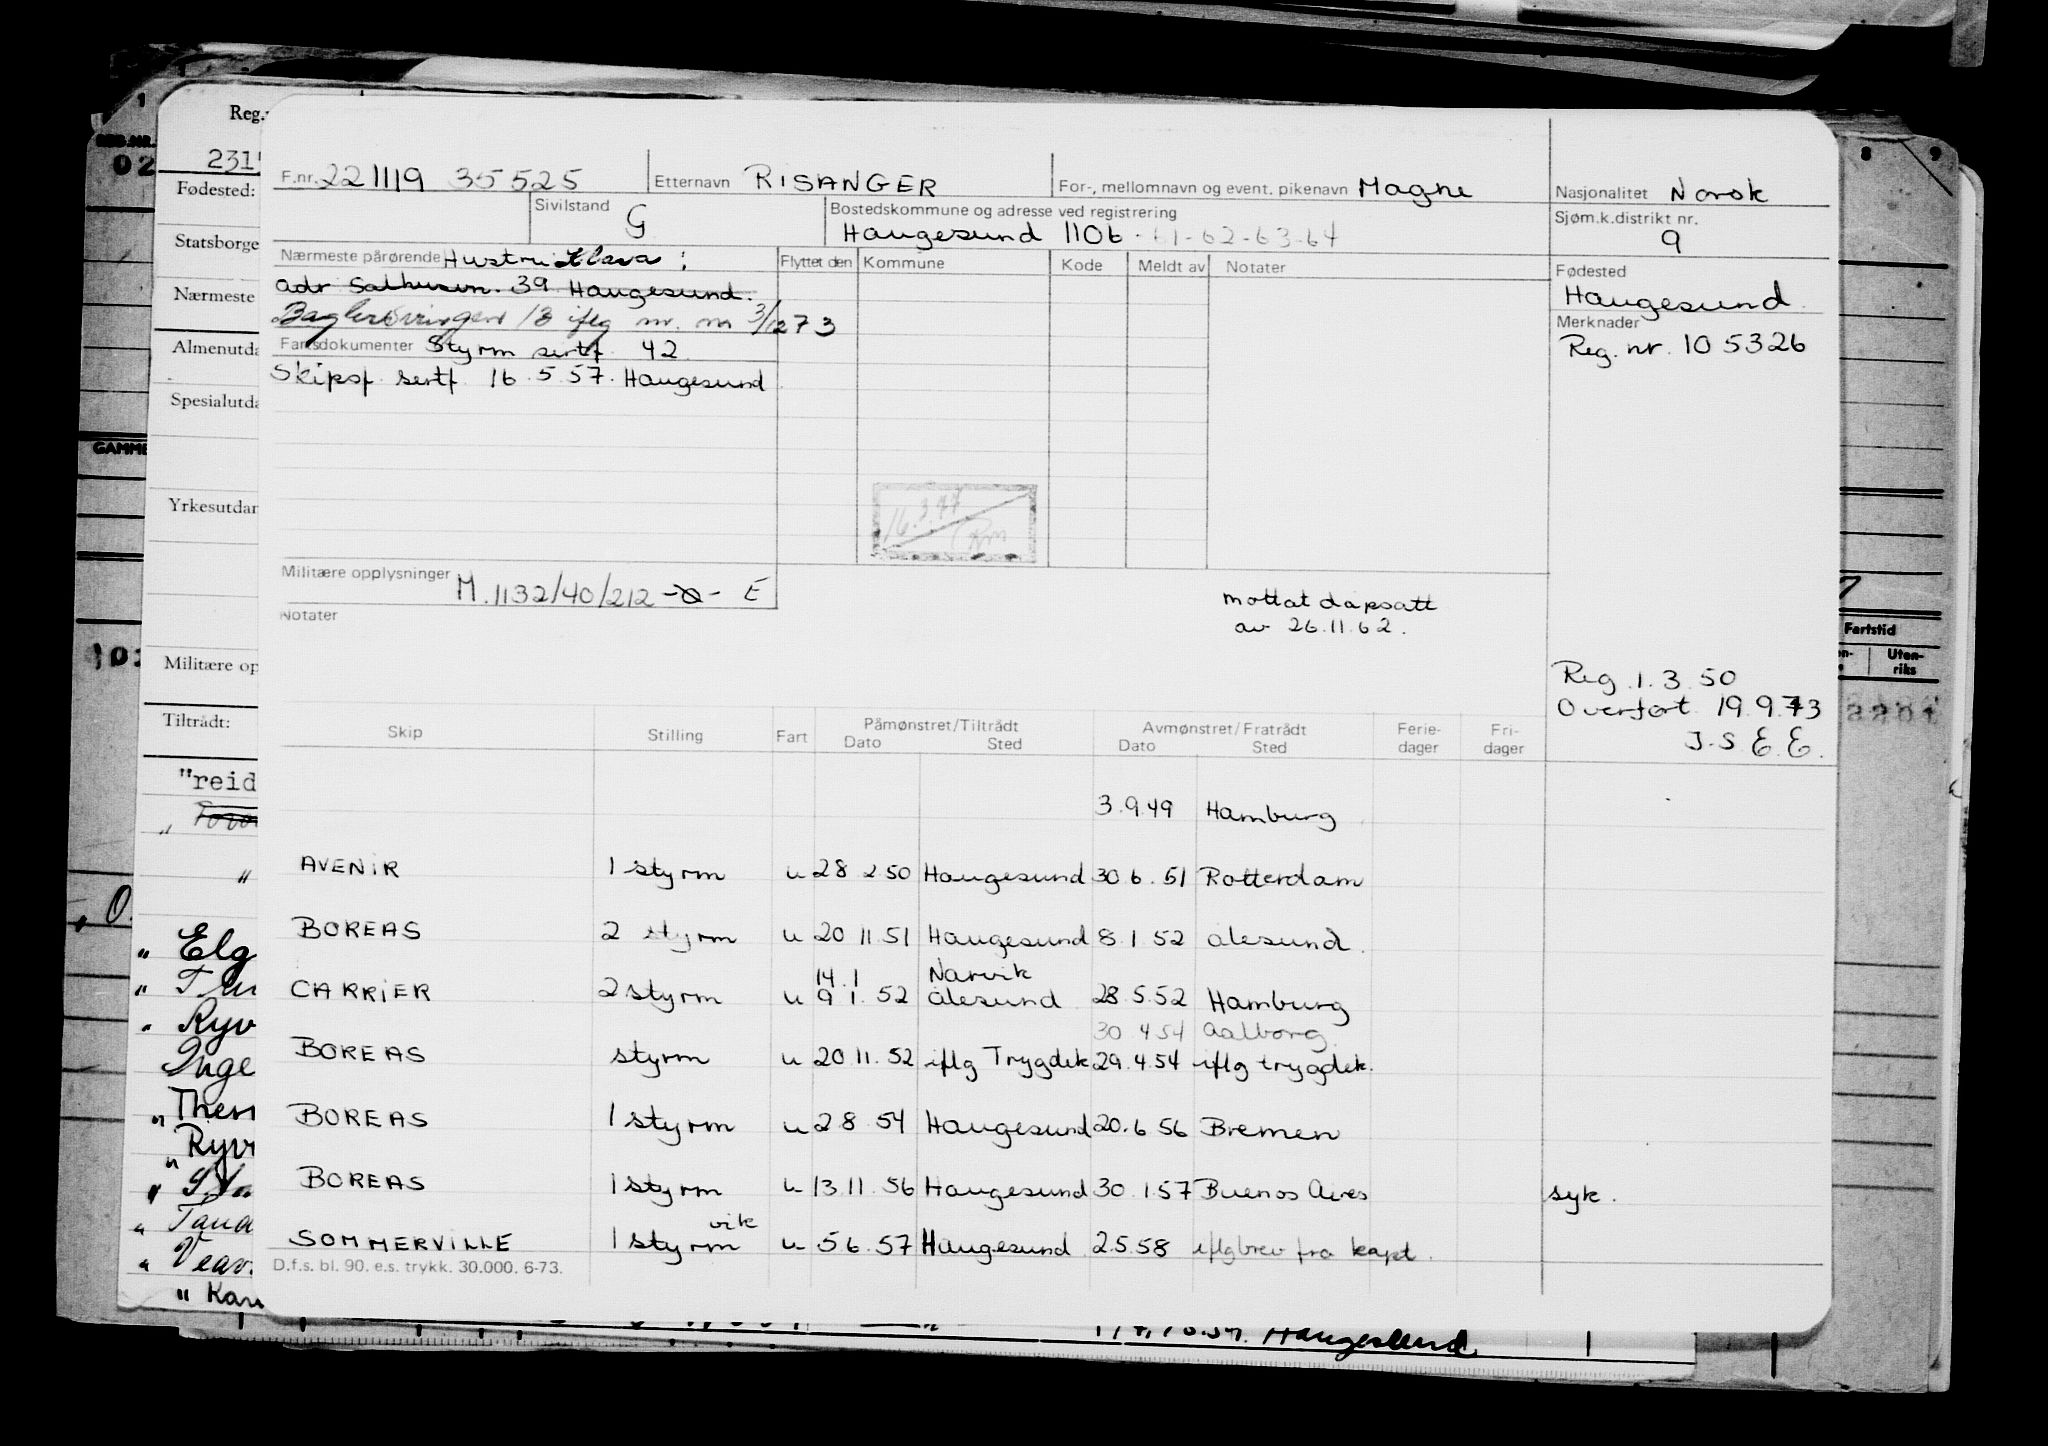 Reg.
231
Fødested:
Statsborge
Nærmeste
Almenutda
Spesialutda
Yrkesutdan
Militære op
Tiltrådt:
"reid
" Elg
" Ryv
Inge
" Ryv
" Kar
F.nr. 221119 35525 Etternavn RISANGER For-, mellomnavn og event. pikenavn Magne Nasjonalitet Norsk
Sivilstand G Bostedskommune og adresse ved registrering Sjøm.k.distrikt nr.
Haugesund 1106 - 61-62-63-64 9
Nærmeste pårørende Hustru Klara : Flyttet den Kommune Kode Meldt av Notater Fødested
adr Salhusvn. 39 Haugesund. Haugesund
13 iflg m. m 3/12 73 Merknader
Fartsdokumenter Styrm sertf. 42 Reg. nr. 105326
Skipsf. sertf. 16.5.57. Haugesund
16.3.77
Rm
Militære opplysninger M.1132/40/212 E
Notater
mottat dapsatt
av 26.11.62.
Reg. 1.3.50
Overført 19.9.73
J.S E.E.
Skip Stilling Fart Påmønstret/Tiltrådt Avmønstret/Fratrådt Ferie- Fri-
Dato Sted Dato Sted dager dager
3.9.49 Hamburg
AVENIR 1 styrm u 28 2 50 Haugesund 30.6.51 Rotterdam
BOREAS 2 styrm u 20 11.51 Haugesund 8.1.52 Ålesund.
14.1 Narvik
CARRIER 2 styrm u 9 1. 52 Ålesund 28.5.52 Hamburg
30 4 54 Aalborg.
BOREAS styrm u 20 11. 52 iflg Trygdek 29.4.54 iflg trygdek.
BOREAS 1 styrm u 2 8 54 Haugesund 20.6 56 Bremen
BOREAS 1 styrm u 13 11. 56 Haugesund 30 1 57 Buenos Aires syk.
vik
SOMMERVILLE 1 styrm u 5 6. 57 Haugesund 2.5.58 iflg brev fra kapt.
D.f.s. bl. 90. e.s. trykk. 30.000. 6-73.
Fartstid
Uten-
riks
Haugesund